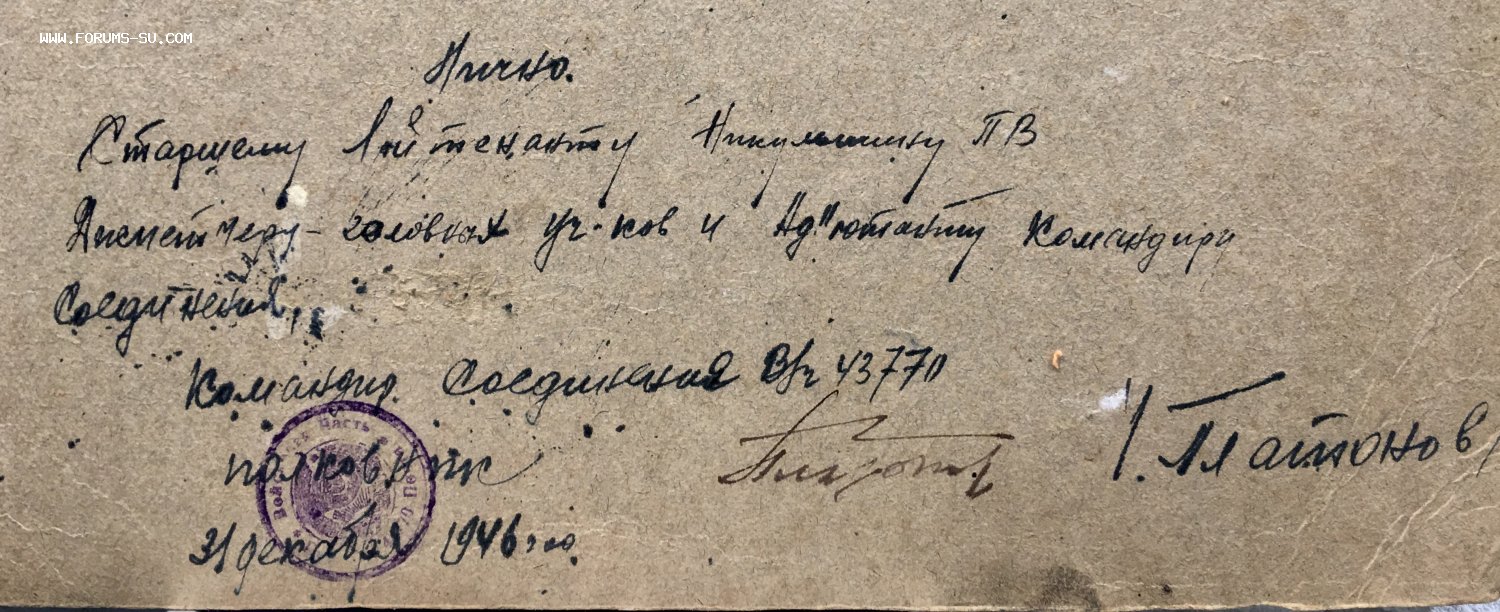 WWW.FORUMS-SU.COM
Лично.
Старшему Лейтенанту Никульшину ПВ
Диспетчеру - головных уч-ков и Ад"ютанту Командира
Соединения,
Командир Соединения В/ч 43770
полковник
/. Платонов/
31 декабря 1946 го
Войсковая Часть